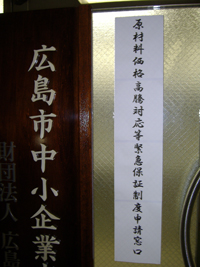 原材料価格高騰対応等緊急保証制度申請窓口
広島市中小企業
財団法人 広島